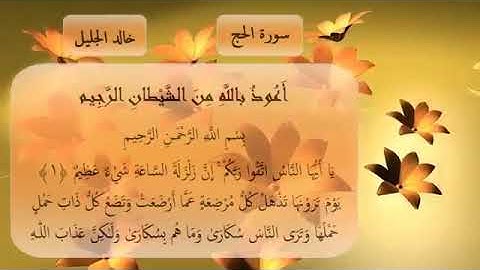 سورة الحج
خالد الجليل
أَعُوذُ بِاللَّهِ مِنَ الشَّيْطَانِ الرَّجِيمِ
بِسْمِ اللَّهِ الرَّحْمَنِ الرَّحِيمِ
يَا أَيُّهَا النَّاسُ اتَّقُوا رَبَّكُمْ ۚ إِنَّ زَلْزَلَةَ السَّاعَةِ شَيْءٌ عَظِيمٌ ﴿١﴾
يَوْمَ تَرَوْنَهَا تَذْهَلُ كُلُّ مُرْضِعَةٍ عَمَّا أَرْضَعَتْ وَتَضَعُ كُلُّ ذَاتِ حَمْلٍ
حَمْلَهَا وَتَرَى النَّاسَ سُكَارَىٰ وَمَا هُم بِسُكَارَىٰ وَلَٰكِنَّ عَذَابَ اللَّهِ